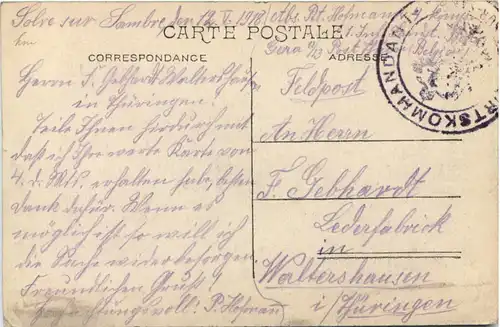 Solre sur Sambre den 12. V. 1918
Abs. P. Hofmann
CARTE POSTALE
CORRESPONDANCE
ADRESSE
ORTSKOMMANDANT
Herrn F. Gebhardt Waltershausen
in Thüringen.
Teile Ihnen hierdurch mit
daß ich Ihre werte Karte vom
4. d. Mts. erhalten habe, besten
Dank dafür. Wenn es
möglich ist so will ich
die Sache wider besorgen
Freundlichen Gruß!
Hochachtungsvoll: P. Hofmann
Feldpost
An Herrn
F. Gebhardt
Lederfabrick
in
Waltershausen
i/Thüringen